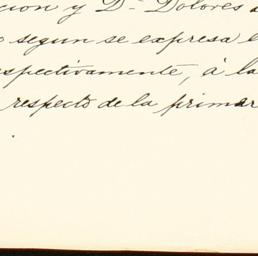 cion y D.ª Dolores
segun se expresa
spectivamente, á la
respecto de la primer